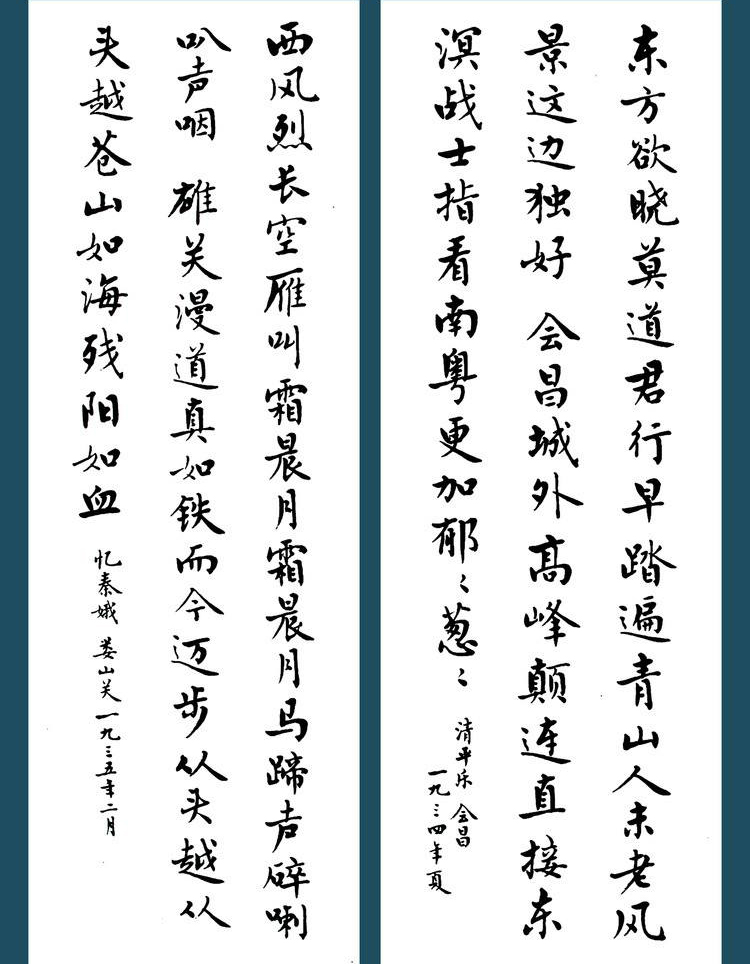 东方欲晓莫道君行早踏遍青山人未老风
景这边独好 会昌城外高峰颠连直接东
溟战士指看南粤更加郁〻葱〻
清平乐 会昌
一九三四年夏
西风烈长空雁叫霜晨月霜晨月马蹄声碎喇
叭声咽 雄关漫道真如铁而今迈步从头越从
头越苍山如海残阳如血
忆秦娥 娄山关 一九三五年二月